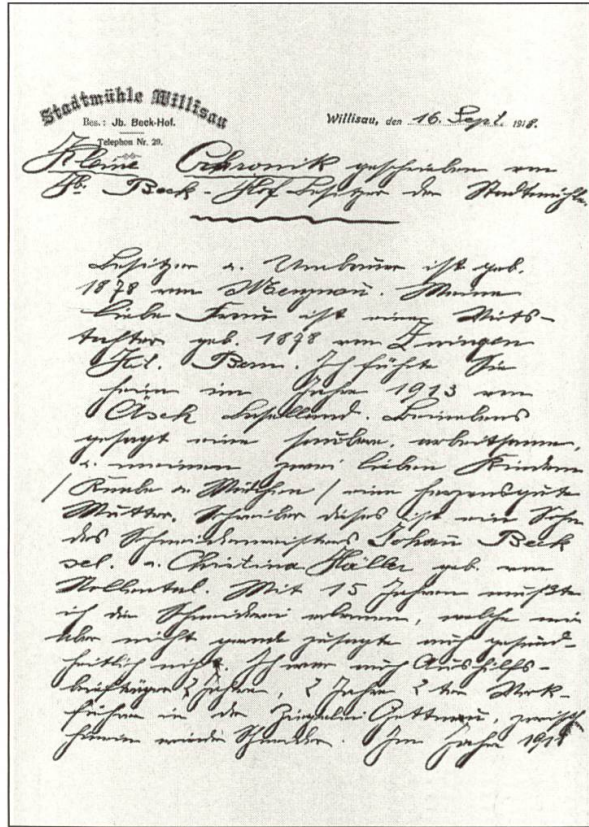 Stadtmühle Willisau
Bes.: Jb. Beck-Hof.
Telephon Nr. 29.
Willisau, den 16. Sept. 1918.
Kleine Chronik geschrieben von
Jb. Beck-Hof Besitzer der Stadtmühle.
Besitzer u. Umbauer ist geb.
1878 von Menznau. Meine
liebe Frau ist eine Wirts-
tochter geb. 1878 von Zwingen
Kt. Bern. Ich führte Sie
heim im Jahre 1913 von
Äsch Baselland. Beinebens
gesagt eine saubere, arbeitsame,
u. meinen zwei lieben Kindern
/ Knabe u. Mädchen / eine herzensgute
Mutter. Schreiber dieses ist ein Sohn
des Schneidermeisters Johann Beck
sel. u. Christina Häller geb. von
Mit 15 Jahren mußte
ich die Schneiderei erlernen, welche mir
aber nicht gerade zusagte auch gesund-
heitlich nicht. Ich war auch Aushilfs-
briefträger 2 Jahre, 2 Jahre 2ter Werk-
führer in der Ziegelei Gettnau, zwisch
hinein wieder Schneider. Im Jahre